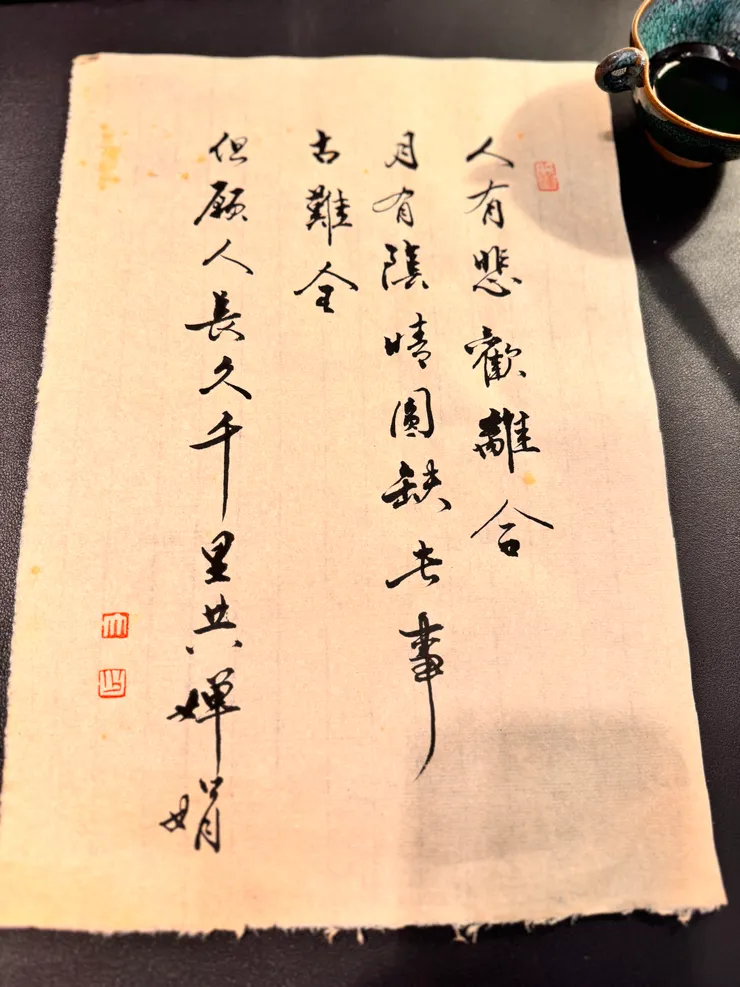 人有悲歡離合
月有陰晴圓缺此事
古難全
但願人長久千里共嬋娟